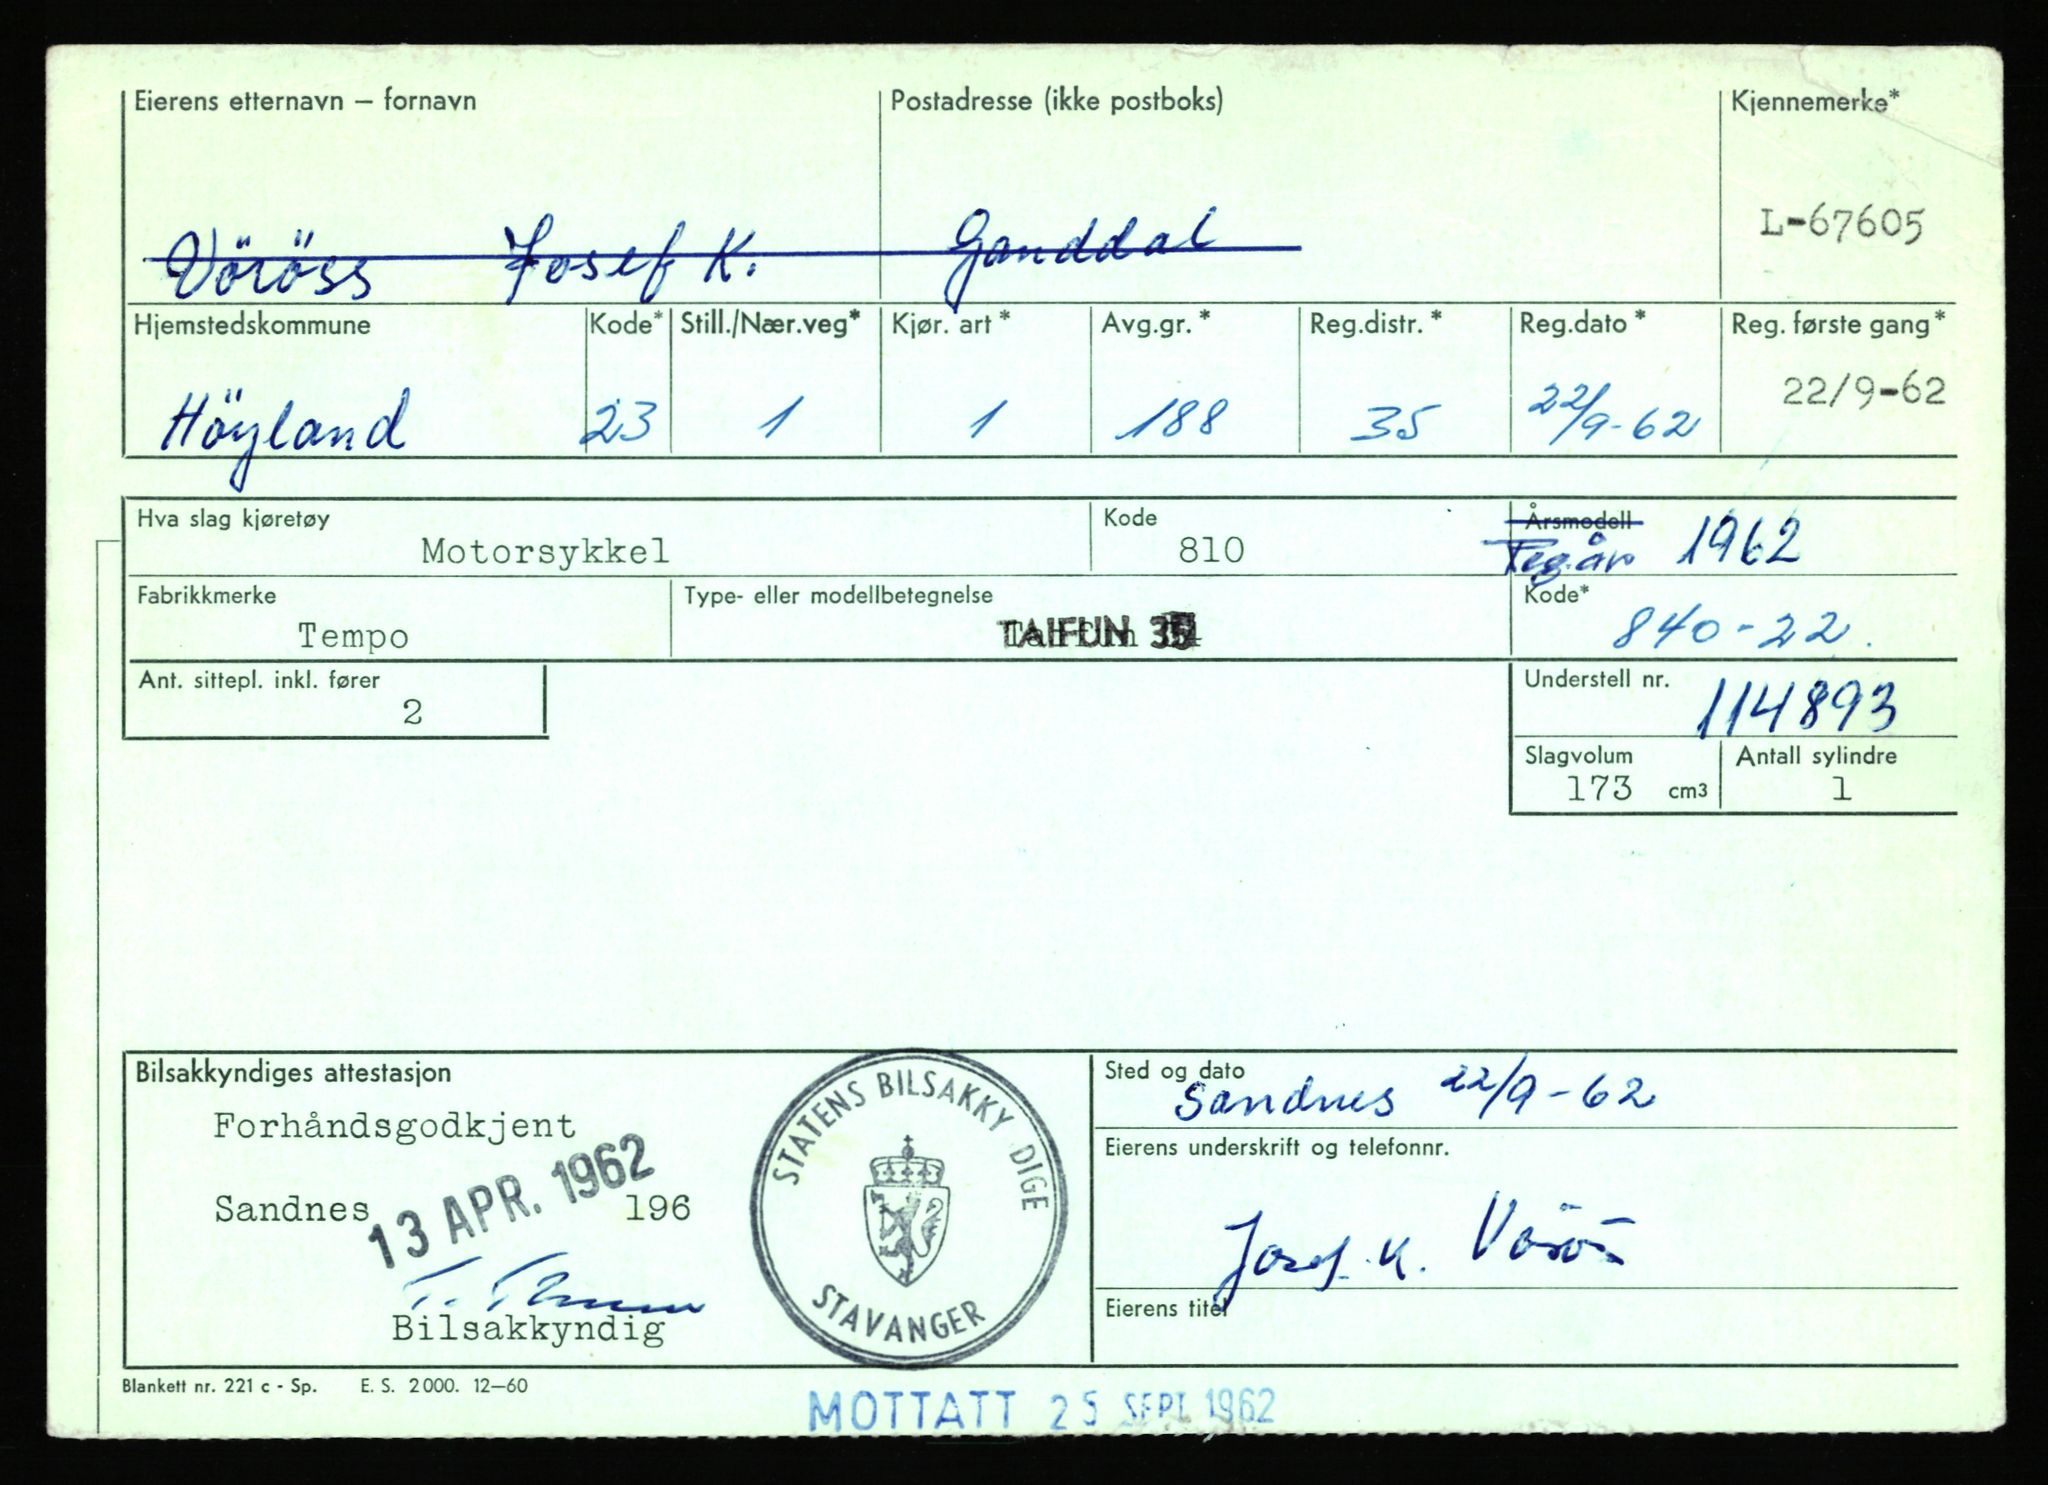 Eierens etternavn – fornavn Postadresse (ikke postboks) Kjennemerke*
Vöröss Josef K. Ganddal L-67605
Hjemstedskommune Kode* Still./Nær.veg* Kjør. art* Avg.gr.* Reg.distr.* Reg.dato* Reg. første gang*
Höyland 23 1 1 188 35 22/9-62 22/9-62
Hva slag kjøretøy Kode Årsmodell
Motorsykkel 810 Reg.år 1962
Fabrikkmerke Type- eller modellbetegnelse Kode*
Tempo TAIFUN 840-22.
Ant. sittepl. inkl. fører Understell nr.
2 114893
Slagvolum Antall sylindre
173 cm3 1
Bilsakkyndiges attestasjon Sted og dato
Sandnes 22/9-62
Forhåndsgodkjent
Eierens underskrift og telefonnr.
Sandnes 13 APR. 1962 196
Josef. K. Vörös
Bilsakkyndig
Eierens titel
STATENS BILSAKKYNDIGE
STAVANGER
Blankett nr. 221 c - Sp. E. S. 2000. 12–60
MOTTATT 25 SEPT 1962